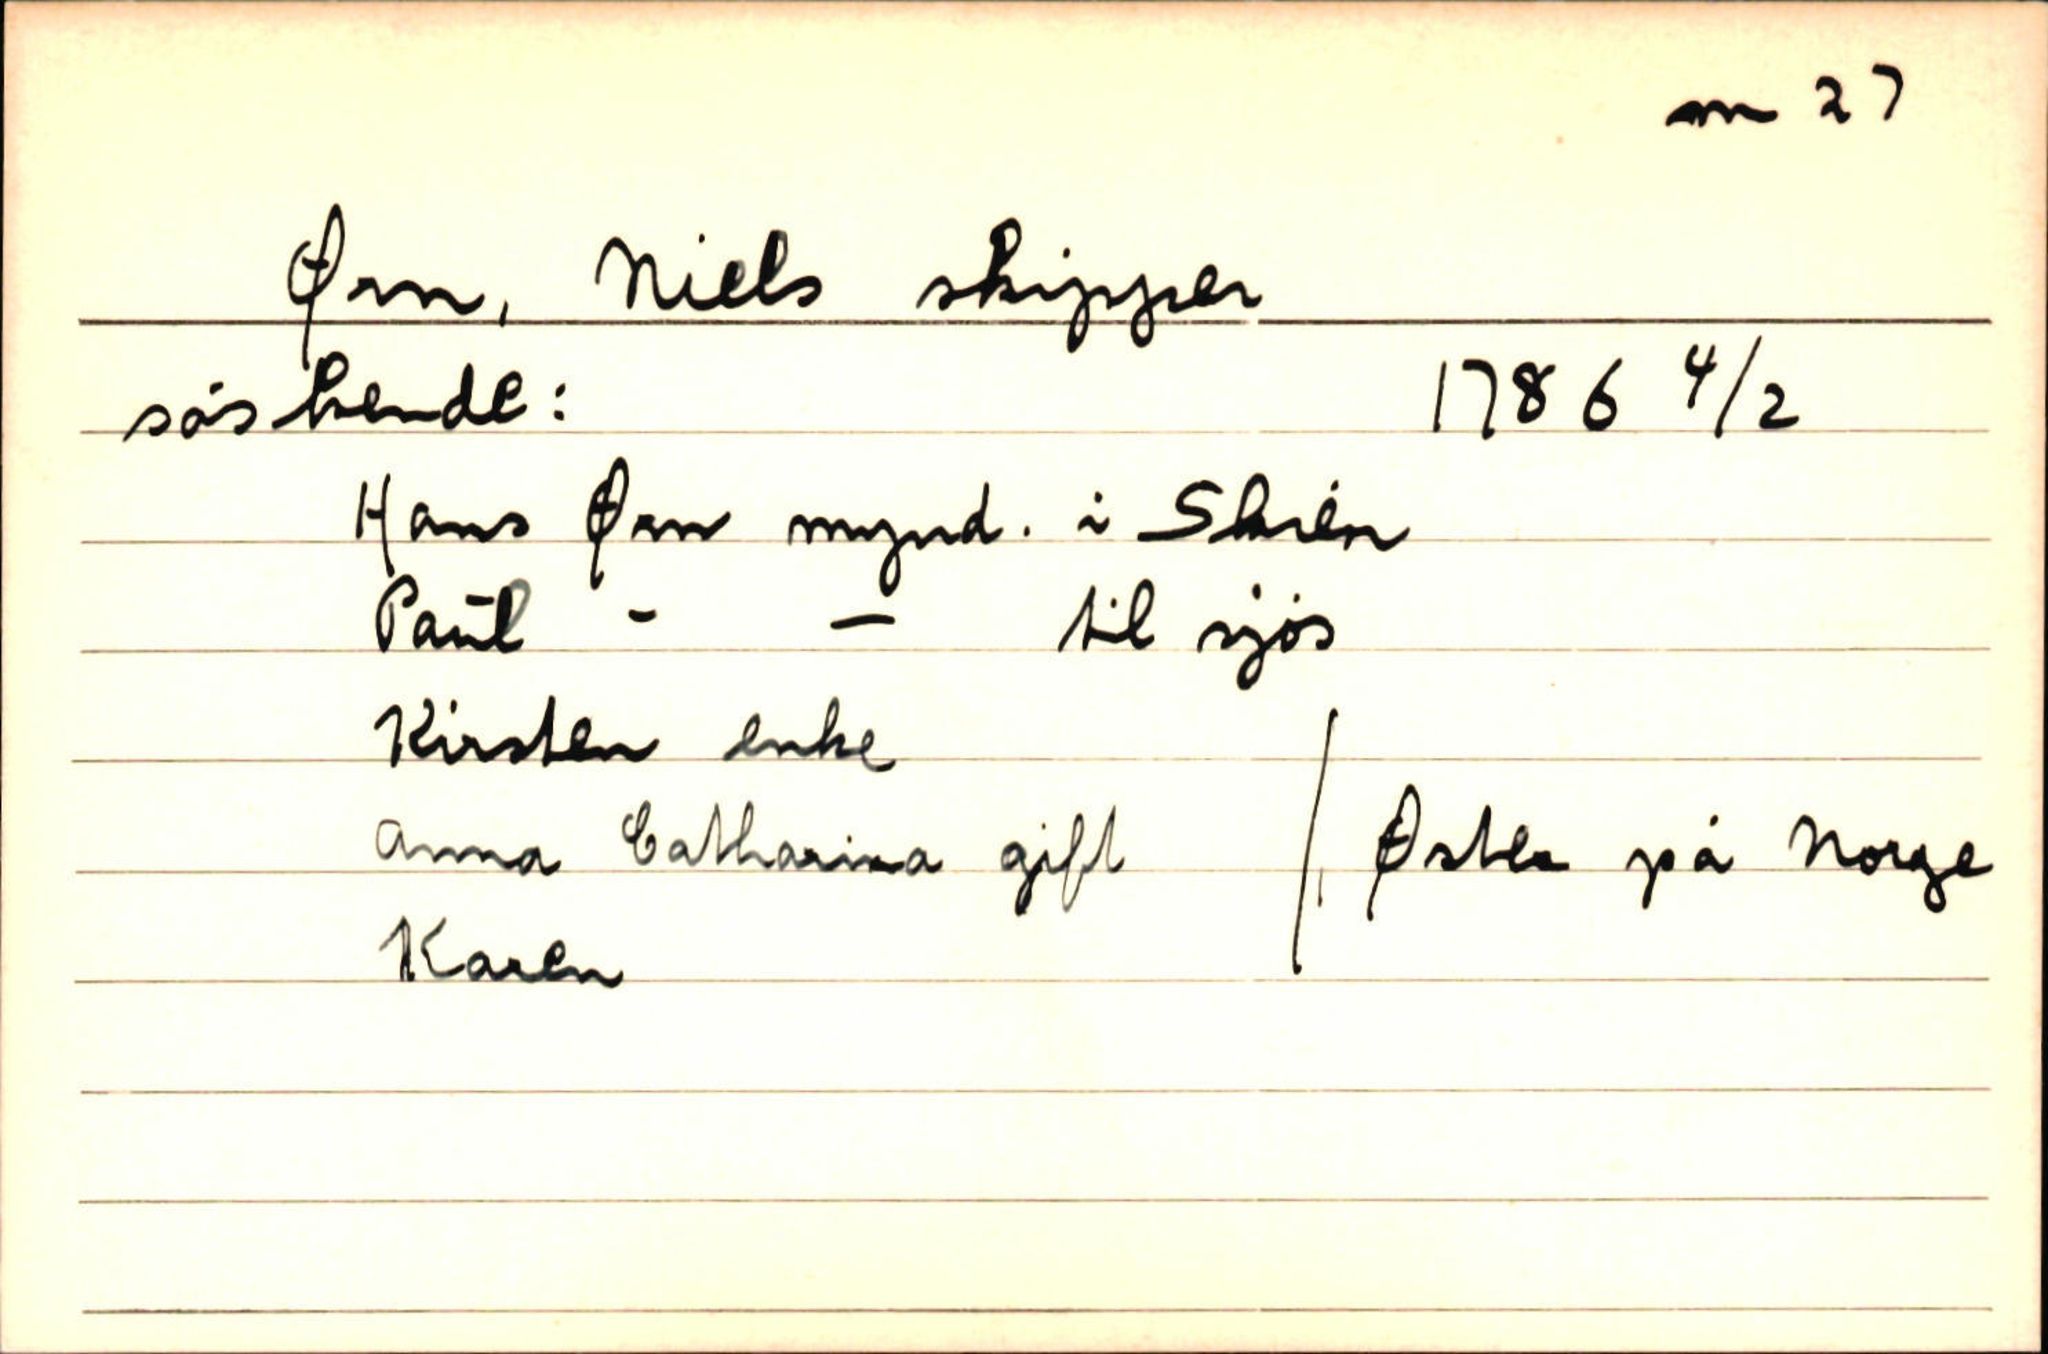 m 27
Ørn, Niels skipper
søskende: 1786 4/2
Hans Ørn mynd. i Skien
Paul - - til sjøs
Kirsten enke
Anna Catharina gift / Øster på Norge
Karen